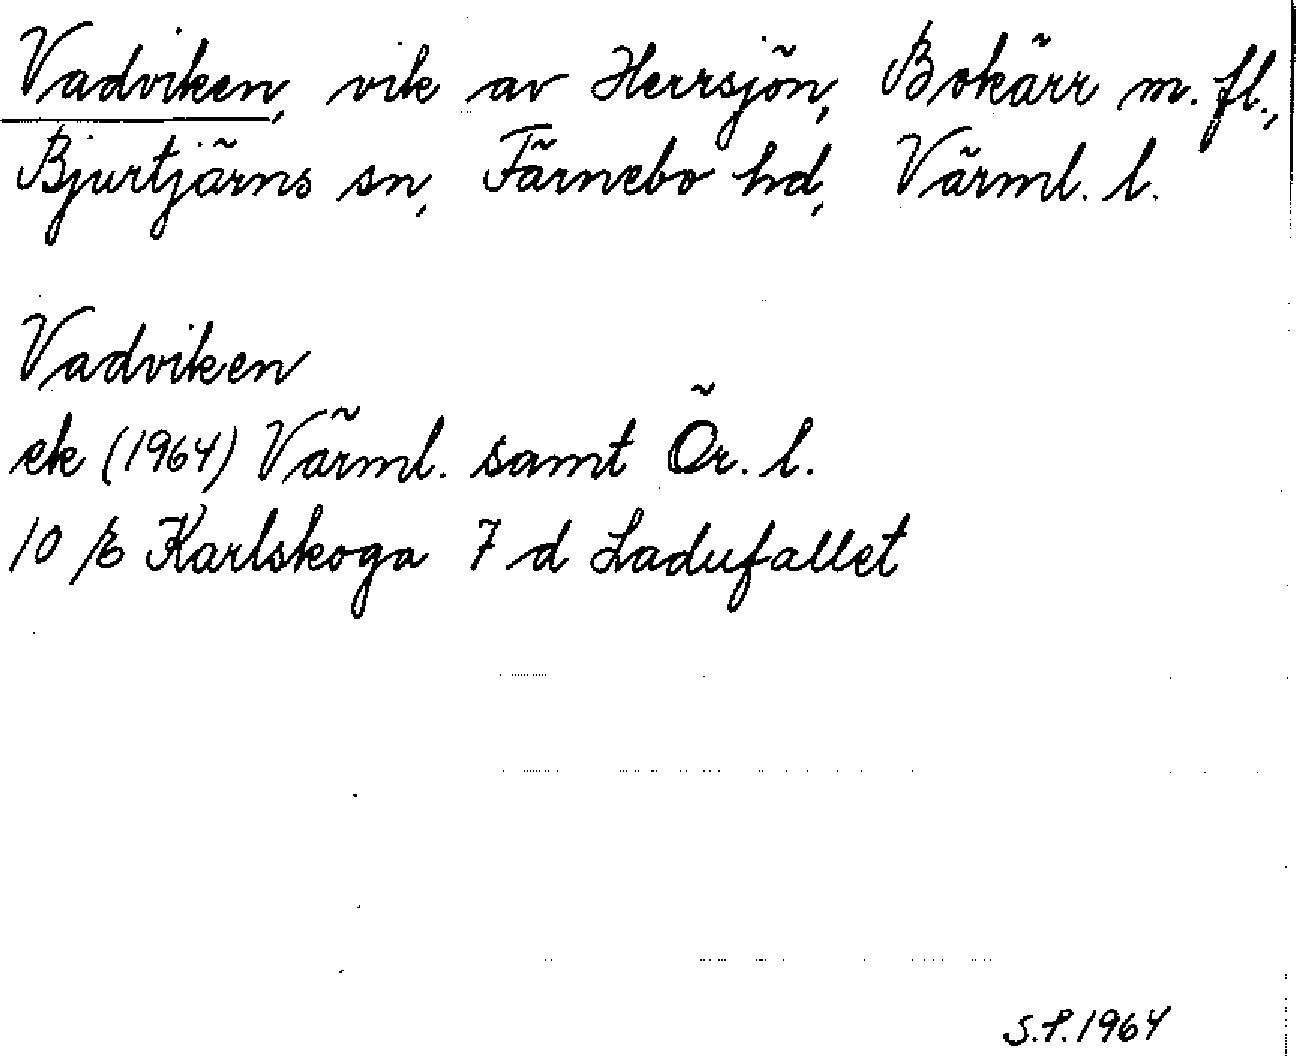 Vadviken, vik av Herrsjön, Bokärr m. fl.,
Bjurtjärns sn, Färnebo hd, Värml. l.
Vadviken
ek (1964) Värml. samt Ör. l.
10 E Karlskoga 7 d Ladufallet
S.P. 1964